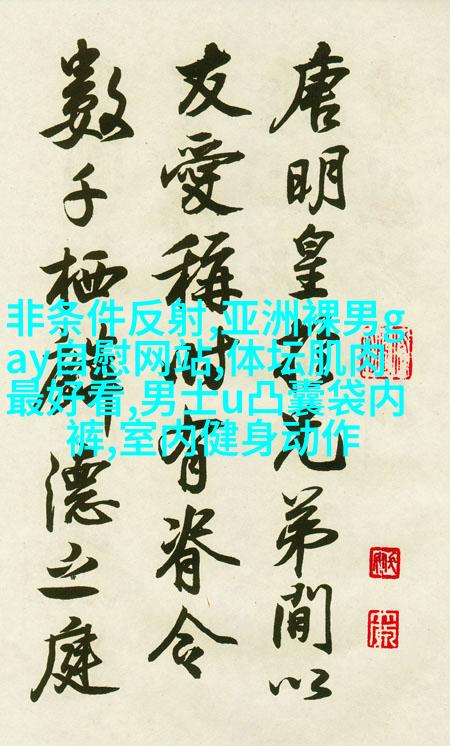 唐明皇於兄弟間以
友愛稱時有脊令
數千栖麟德之庭
非条件反射,亚洲裸男g
ay自慰网站,体坛肌肉
最好看,男士u凸囊袋内
裤,室内健身动作